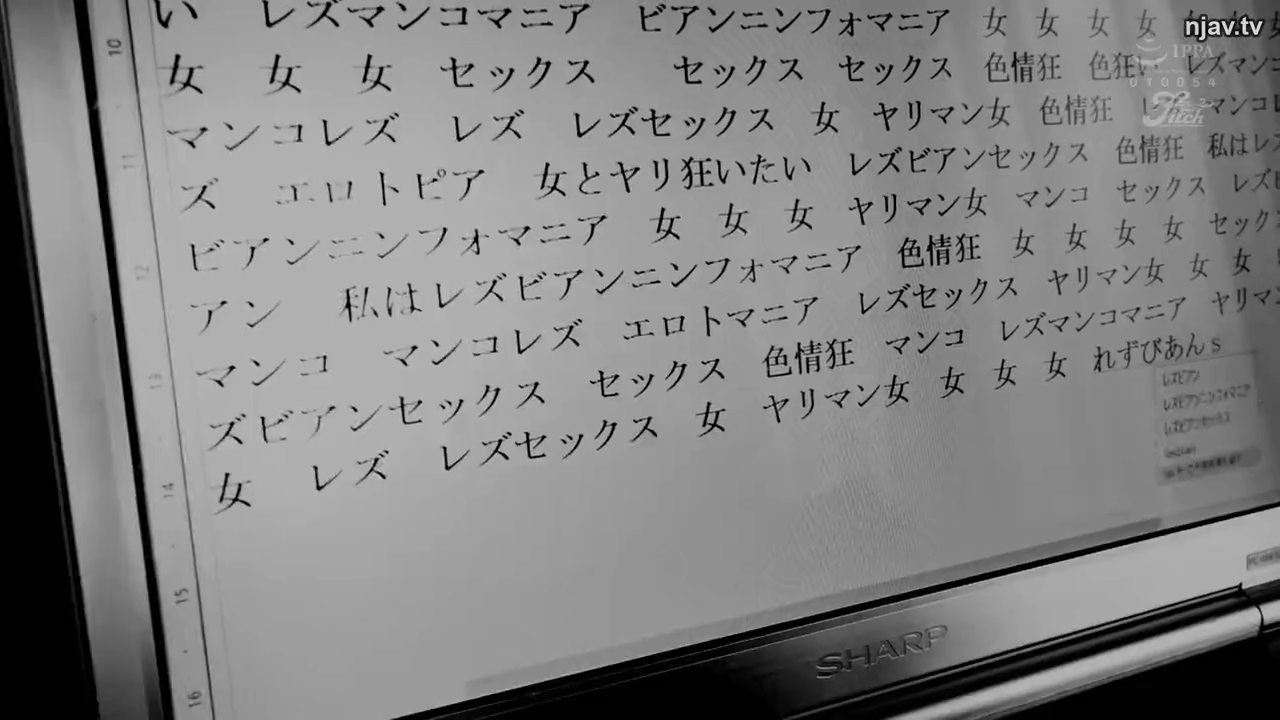 njav.tv
IPPA
010054
Fitch
い レズマンコマニア ビアンニンフォマニア 女 女 女 女
女 女 女 セックス セックス セックス 色情狂 色狂い レズマンコ
マンコレズ レズ レズセックス 女 ヤリマン女 色情狂 マンコ
ズ エロトピア 女とヤリ狂いたい レズビアンセックス 色情狂 私はレズ
ビアンニンフォマニア 女 女 女 ヤリマン女 マンコ セックス レズビ
アン 私はレズビアンニンフォマニア 色情狂 女 女 女 女 セックス
マンコ マンコレズ エロトマニア レズセックス ヤリマン女 女 女
ズビアンセックス セックス 色情狂 マンコ レズマンコマニア ヤリマン
女 レズ レズセックス 女 ヤリマン女 女 女 女 れずびあんs
レズビアン
レズビアンニンフォマニア
レズビアンセックス
lesbian
10
11
12
13
14
15
16
SHARP